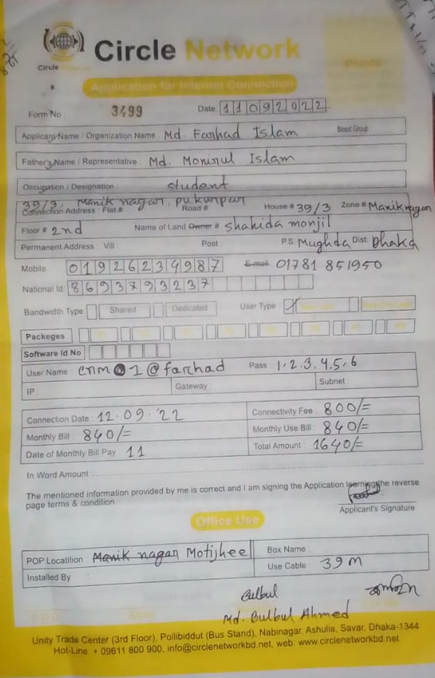 Circle Network
Circle
Application for Internet Connection
Form No 3499 Date 11092022
Applicant Name / Organization Name Md. Farhad Islam Blood Group
Father's Name / Representative Md. Monirul Islam
Occupation / Designation student
39/3, Manik nagar, pukurpar
Connection Address Flat # Road # House # 39/3 Zone # Maniknagar
Floor # 2nd Name of Land Owner # shahida monjil
Permanent Address Vill Post P.S Mughda Dist. Dhaka
Mobile 01926234987 E-mail 01781 851950
National Id 8693793237
Bandwidth Type Shared Dedicated User Type
Packeges
Software Id No
User Name cnm01@farhad Pass 1.2.3.4.5.6
IP Gateway Subnet
Connection Date : 12.09.'22 Connectivity Fee : 800/=
Monthly Bill : 840/= Monthly Use Bill : 840/=
Date of Monthly Bill Pay 11 Total Amount : 1640/=
In Word Amount
The mentioned information provided by me is correct and I am signing the Application the reverse
page terms & condition.
Applicant's Signature
Office Use
POP Locatition Manik nagar Motijheel Box Name :
Installed By : Use Cable : 39 M
Bulbul
Md. Bulbul Ahmed
Unity Trade Center (3rd Floor), Pollibiddut (Bus Stand), Nabinagar, Ashulia, Savar, Dhaka-1344
Hot-Line: + 09611 800 900, info@circlenetworkbd.net, web: www.circlenetworkbd.net